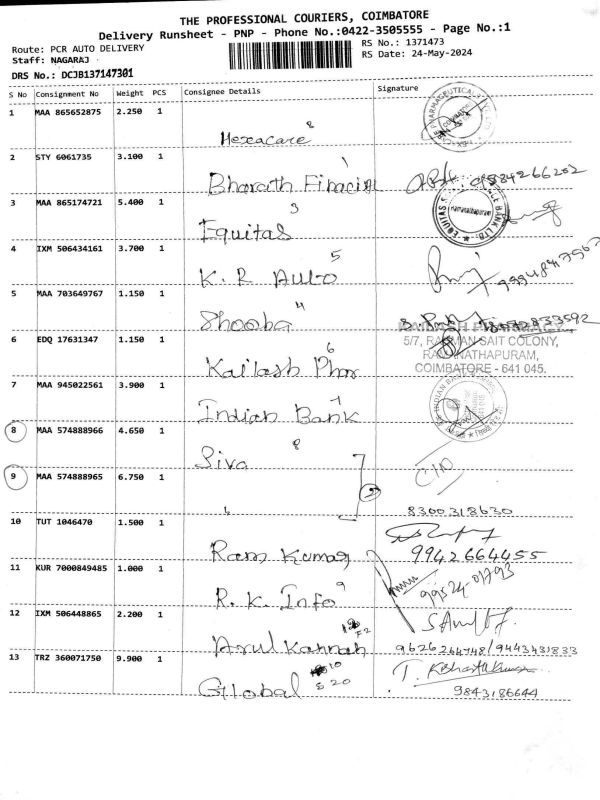 THE PROFESSIONAL COURIERS, COIMBATORE
Delivery Runsheet - PNP - Phone No.:0422-3505555 - Page No.:1
Route: PCR AUTO DELIVERY
RS No.: 1371473
Staff: NAGARAJ
RS Date: 24-May-2024
DRS No.: DCJB137147301
S No Consignment No Weight PCS Consignee Details Signature
1 MAA 865652875 2.250 1
Hexacare 8
2 STY 6061735 3.100 1
Bharath Financial 1 9584266202
3 MAA 865174721 5.400 1
Equitas 3
Ramanathapuram
4 IXM 506434161 3.700 1
K. R Auto 5
5 MAA 703649767 1.150 1
Shooba 4
6 EDQ 17631347 1.150 1
Kailash Phar 6
KAILASH PHARMACY
5/7, RAHMAN SAIT COLONY,
RAMANATHAPURAM,
COIMBATORE - 641 045.
7 MAA 945022561 3.900 1
Indian Bank 7
8 MAA 574888966 4.650 1
Siva 8
9 MAA 574888965 6.750 1
2
8300318630
10 TUT 1046470 1.500 1
Ram Kumar 9942664455
11 KUR 7000849485 1.000 1
R. K. Info 9 99524-01793
12 IXM 506448865 2.200 1
Arul Kannah F2 9626264748/9443431833
13 TRZ 360071750 9.900 1
Global 10
E 20
9843186644